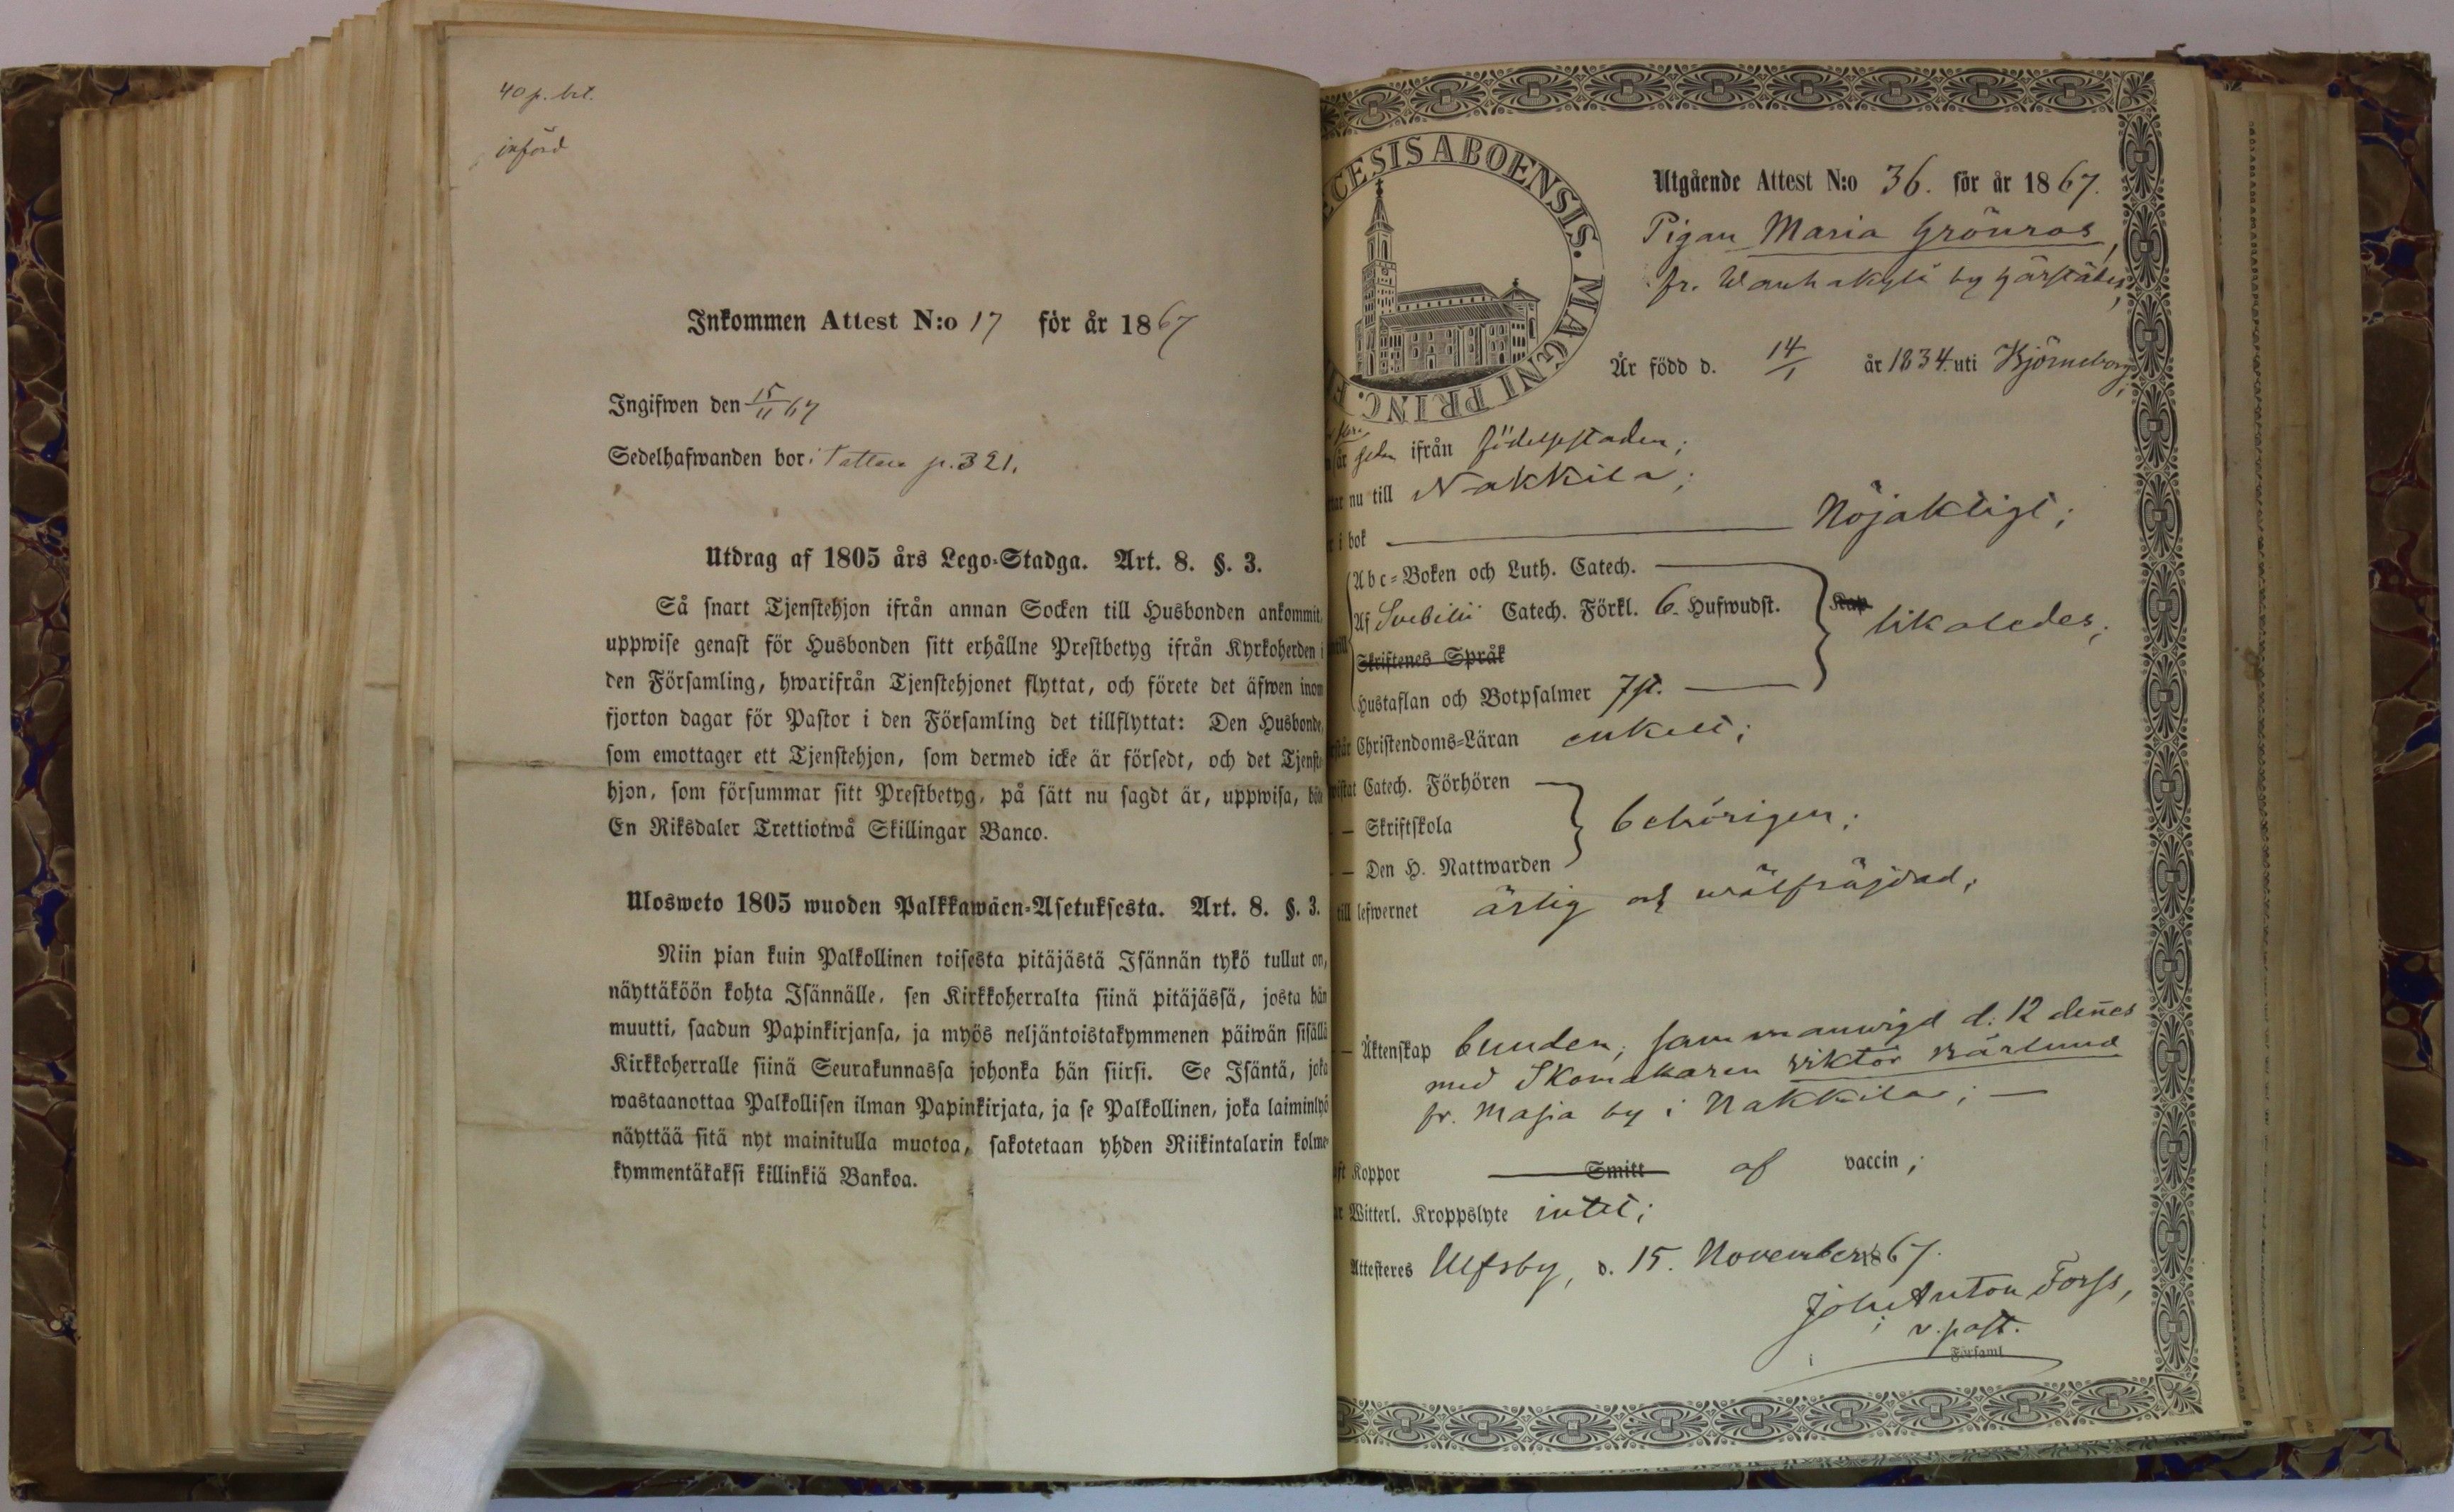 40 p. bet.
införd
Inkommen Attest N:o 17 för år 1867
Ingifwen den 15/11 67
Sedelhafwanden bor i Tattara p. 321.
Utdrag af 1805 års Lego-Stadga. Art. 8. §. 3.
Så snart Tjenstehjon ifrån annan Socken till Husbonden ankommit,
uppwise genast för Husbonden sitt erhållne Prestbetyg ifrån Kyrkoherden i
den Församling, hwarifrån Tjenstehjonet flyttat, och förete det äfwen inom
fjorton dagar för Pastor i den Församling det tillflyttat: Den Husbonde,
som emottager ett Tjenstehjon, som dermed icke är försedt, och det Tjenste-
hjon, som försummar sitt Prestbetyg, på sätt nu sagdt är, uppwisa, böte
En Riksdaler Trettiotwå Skillingar Banco.
Ulosweto 1805 wuoden Palkkawäen-Asetuksesta. Art. 8. §. 3.
Niin pian kuin Palkollinen toisesta pitäjästä Isännän tykö tullut on,
näyttäköön kohta Isännälle, sen Kirkkoherralta siinä pitäjässä, josta hän
muutti, saadun Papinkirjansa, ja myös neljäntoistakymmenen päiwän sisällä
Kirkkoherralle siinä Seurakunnassa johonka hän siirsi. Se Isäntä, joka
wastaanottaa Palkollisen ilman Papinkirjata, ja se Palkollinen, joka laiminlyö
näyttää sitä nyt mainitulla muotoa, sakotetaan yhden Riikintalarin kolme-
kymmentäkaksi killinkiä Bankoa.
CESIS ABOENSIS. MAGNI PRINC.
Utgående Attest N:o 36. för år 1867.
Pigan Maria Grönroos,
fr. Wanhakylä by härstädes,
Är född d. 14/1 år 1834 uti Björneborg;
är sedan ifrån födelsestaden;
nu till Nakkila;
i bok Nöjaktigt;
Abc-Boken och Luth. Catech.
Af Svebilii Catech. Förkl. 6. Hufwudst. Kap likaledes;
Skriftenes Språk
Hustaflan och Botpsalmer 7 st.
Christendoms-Läran enkelt;
Catech. Förhören
— Skriftskola behörigen;
— Den H. Nattwarden
till lefwernet ärlig och wälfräjdad;
— Äktenskap bunden; sammanwigd d. 12 dennes
med Skomakaren Viktor Kärlund
fr. Masia by i Nakkila; —
Koppor Smitt af vaccin;
Witterl. Kroppslyte intet;
Attesteres Ulfsby, d. 15. November 1867.
Joh. Anton Forss,
v. past.
i Församl